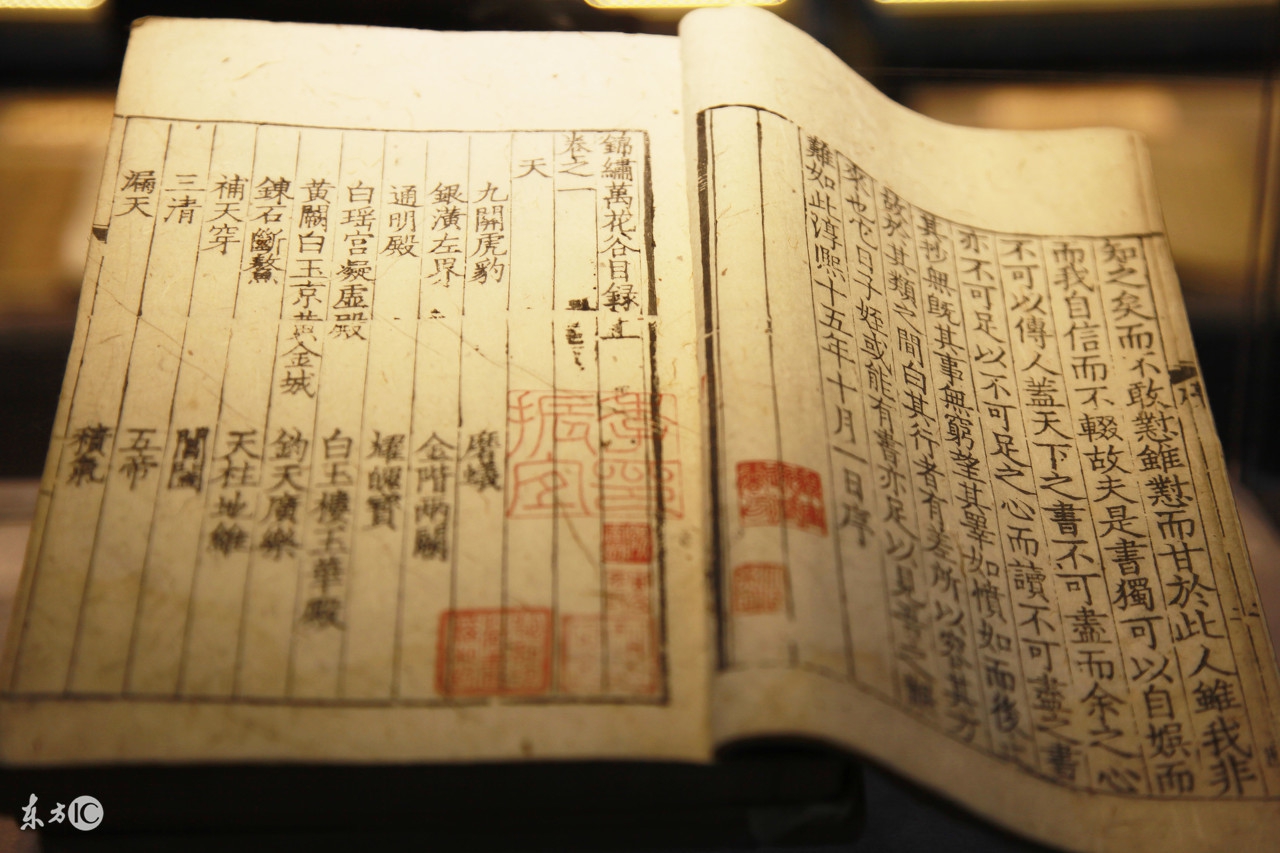 知之矣而不敢懟雖懟而甘於此人雖我非
而我自信而不輟故夫是書獨可以自娯而
不可以傳人蓋天下之書不可盡而余之心
亦不可足以不可足之心而讀不可盡之書
其抄無既其事無窮望其睪如憤如而後
故於其類之間白其行者有差所以窮其方
來也它日子姪或能有書亦足以見吾之
難如此淳熙十五年十月一日序
序
錦繡萬花谷目録上
卷之一
天
九關虎豹 磨蟻
銀潢左界 金階兩闕
通明殿 耀魄寶
白瑶宮凝虚殿 白玉樓玉華殿
黃闕白玉京黄金城 鈞天廣樂
鍊石斷鰲 天柱地維
補天穿 閶闔
三清 五帝
漏天 積氣
东方IC